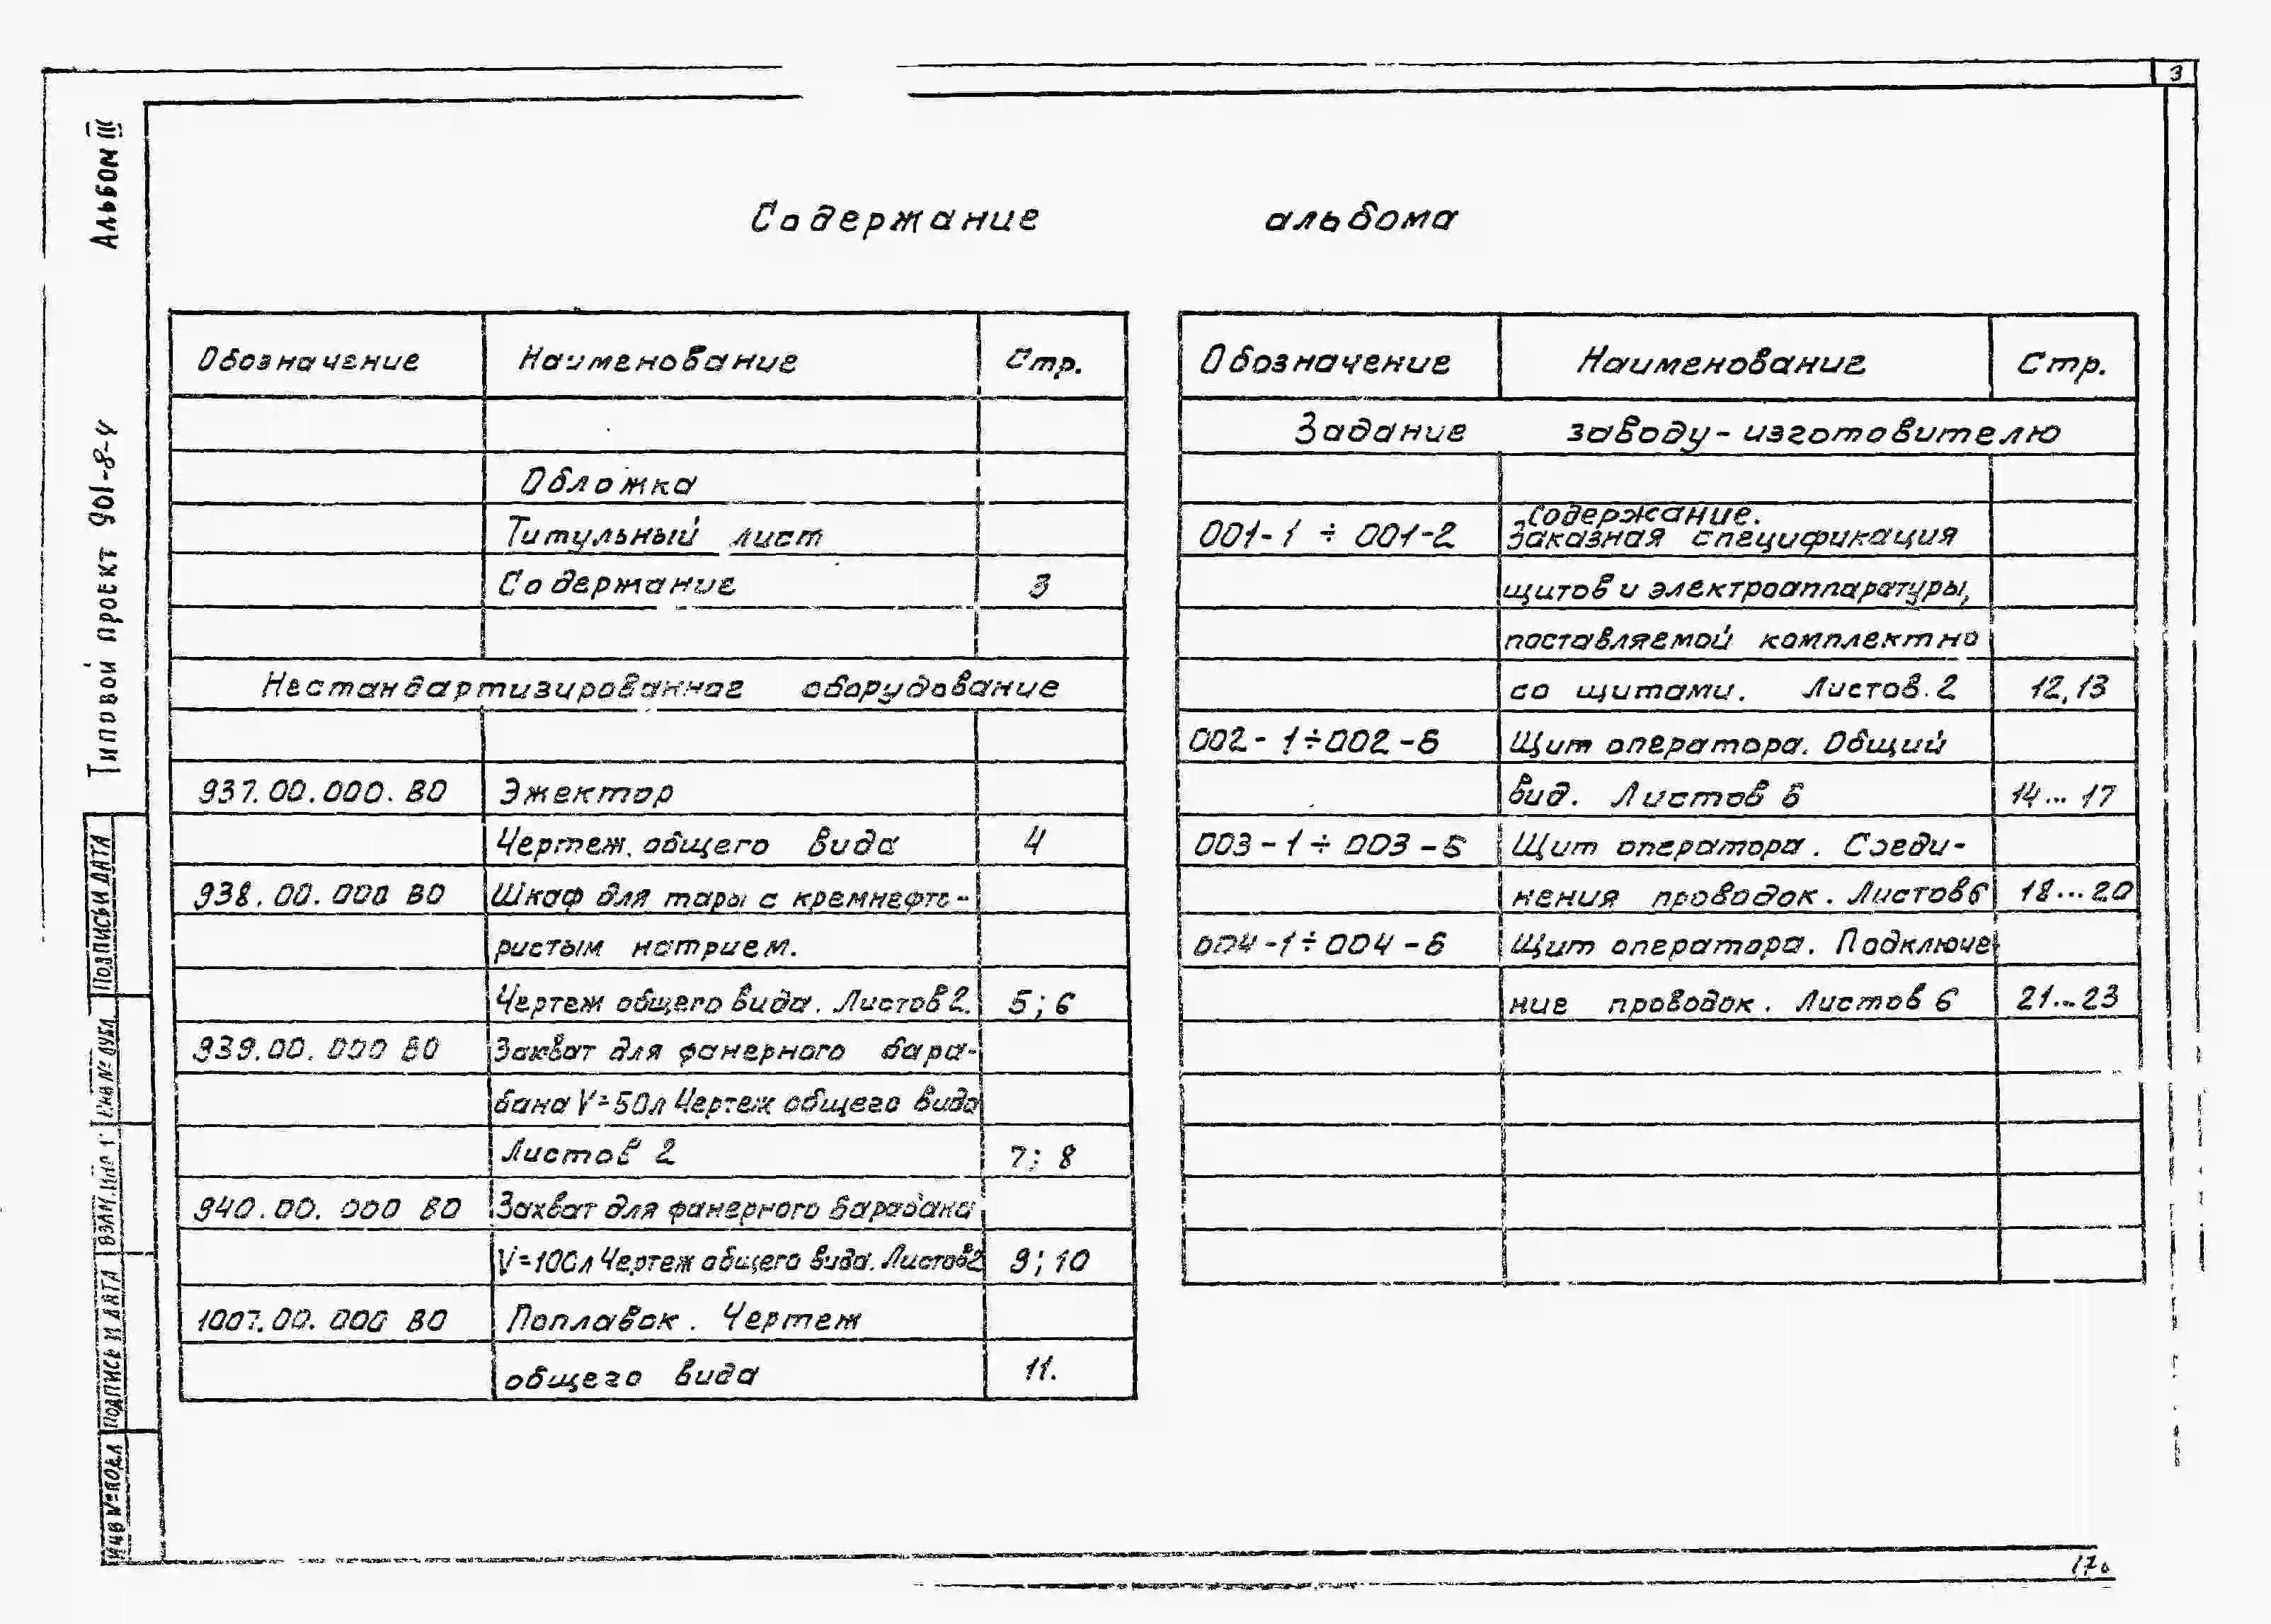 3
Альбом III
Типовой проект 901-8-4
Содержание альбома
Обозначение Наименование Стр.
Обложка
Титульный лист
Содержание 3
Нестандартизированное оборудование
937.00.000.ВО Эжектор
Чертеж общего вида 4
938.00.000 ВО Шкаф для тары с кремнефто-
ристым натрием.
Чертеж общего вида. Листов 2. 5; 6
939.00.000 ВО Захват для фанерного бара-
бана V=50л Чертеж общего вида
Листов 2 7; 8
940.00.000 ВО Захват для фанерного барабана
V=100л Чертеж общего вида. Листов 2 9; 10
1007.00.000 ВО Поплавок. Чертеж
общего вида 11.
Обозначение Наименование Стр.
Задание заводу-изготовителю
Содержание.
001-1 ÷ 001-2 Заказная спецификация
щитов и электроаппаратуры,
поставляемой комплектно
со щитами. Листов. 2 12,13
002-1÷002-6 Щит оператора. Общий
вид. Листов 6 14... 17
003-1÷003-6 Щит оператора. Соеди-
нения проводок. Листов 6 18...20
004-1÷004-6 Щит оператора. Подключе
ние проводок. Листов 6 21...23
Подпись и дата
Инв № дубл
Взам. инв
Подпись и дата
Инв № подл